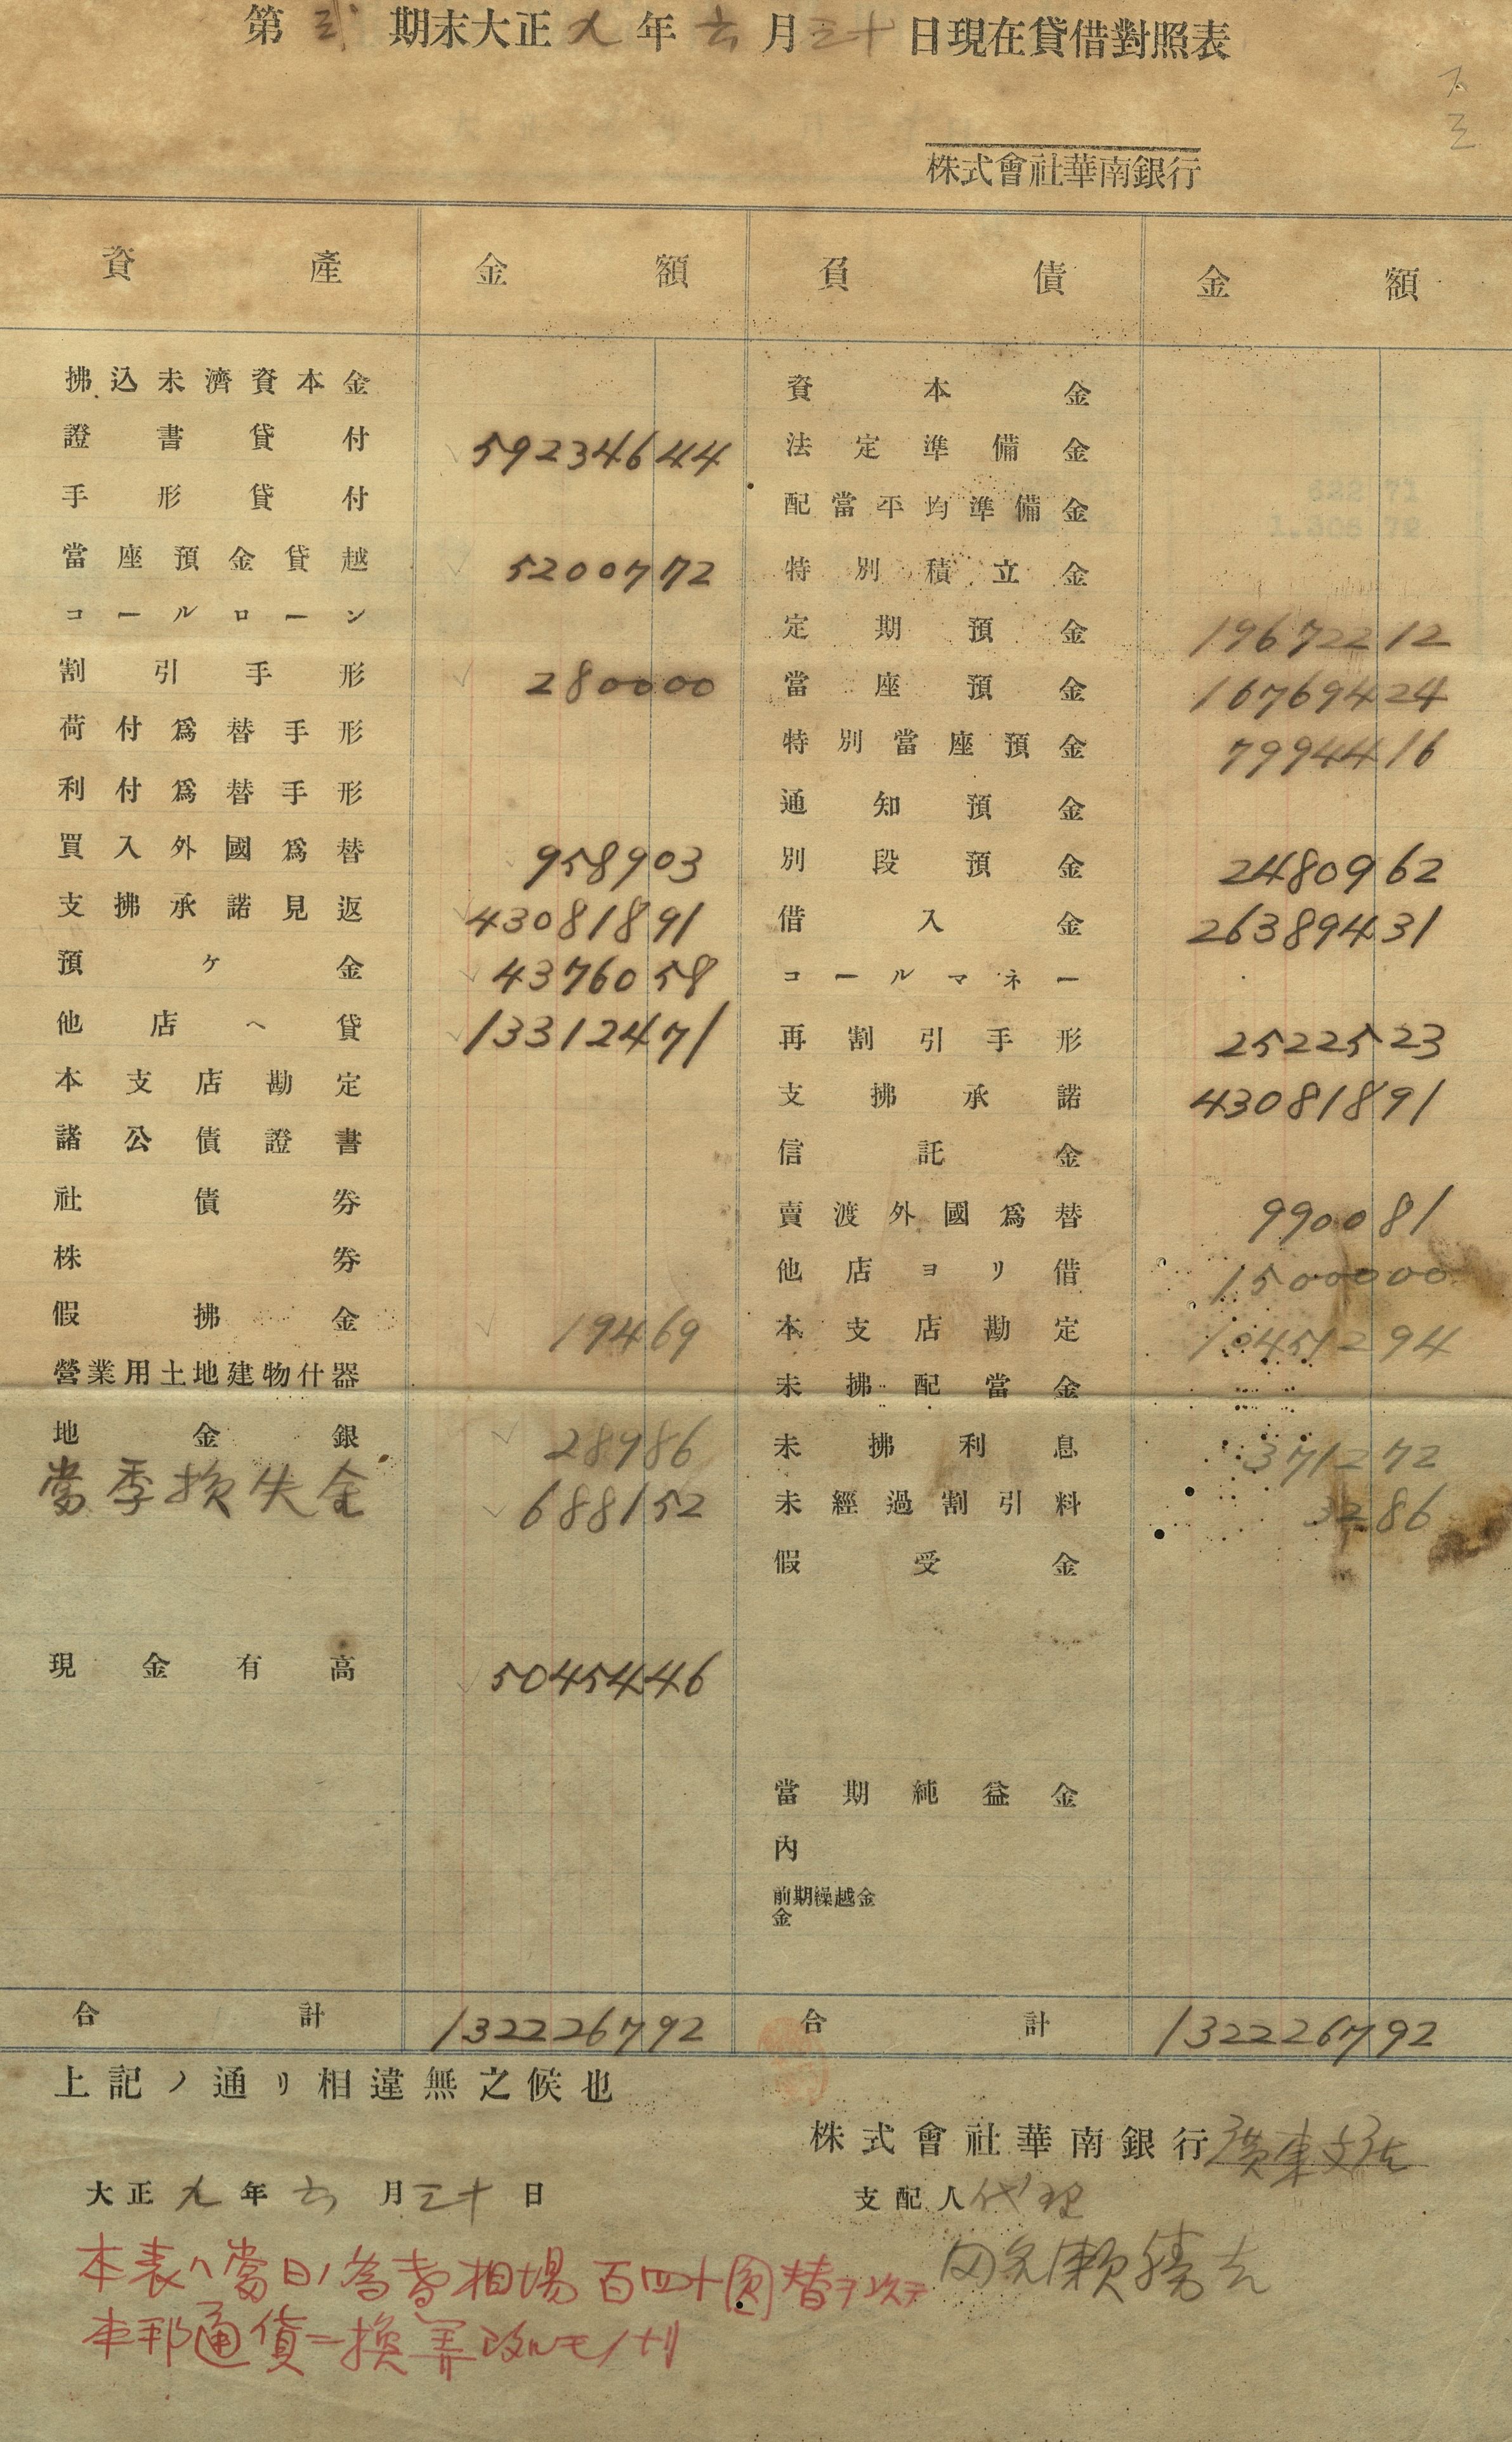 第 弐 期末大正 九 年 六 月 三十 日現在貸借對照表
株式會社華南銀行
資產 金額 負債 金額
拂込未濟資本金
證書貸付 592346 44
手形貸付
當座預金貸越 52007 72
コールローン
割引手形 2800 00
荷付爲替手形
利付爲替手形
買入外國爲替 9589 03
支拂承諾見返 430818 91
預ケ金 43760 58
他店ヘ貸 133124 71
本支店勘定
諸公債證書
社債券
株券
假拂金 194 69
營業用土地建物什器
地金銀 289 86
當季損失金 6881 52
現金有高 50454 46
合計 1322267 92
資本金
法定準備金
配當平均準備金
特別積立金
定期預金 196722 12
當座預金 167694 24
特別當座預金 79944 16
通知預金
別段預金 24809 62
借入金 263894 31
コールマネー
再割引手形 25225 23
支拂承諾 430818 91
信託金
賣渡外國爲替 9900 81
他店ヨリ借 15000 00
本支店勘定 104512 94
未拂配當金
未拂利息 3712 72
未經過割引料 32 86
假受金
當期純益金
內
前期繰越金
金
合計 1322267 92
上記ノ通リ相違無之候也
大正 九 年 六 月 三十 日
株式會社華南銀行 廣東支店
支配人 代理
本表ハ當日ノ為替相場 百四十圓替ヲ以テ
本邦通貨ニ換算改ルモノナリ